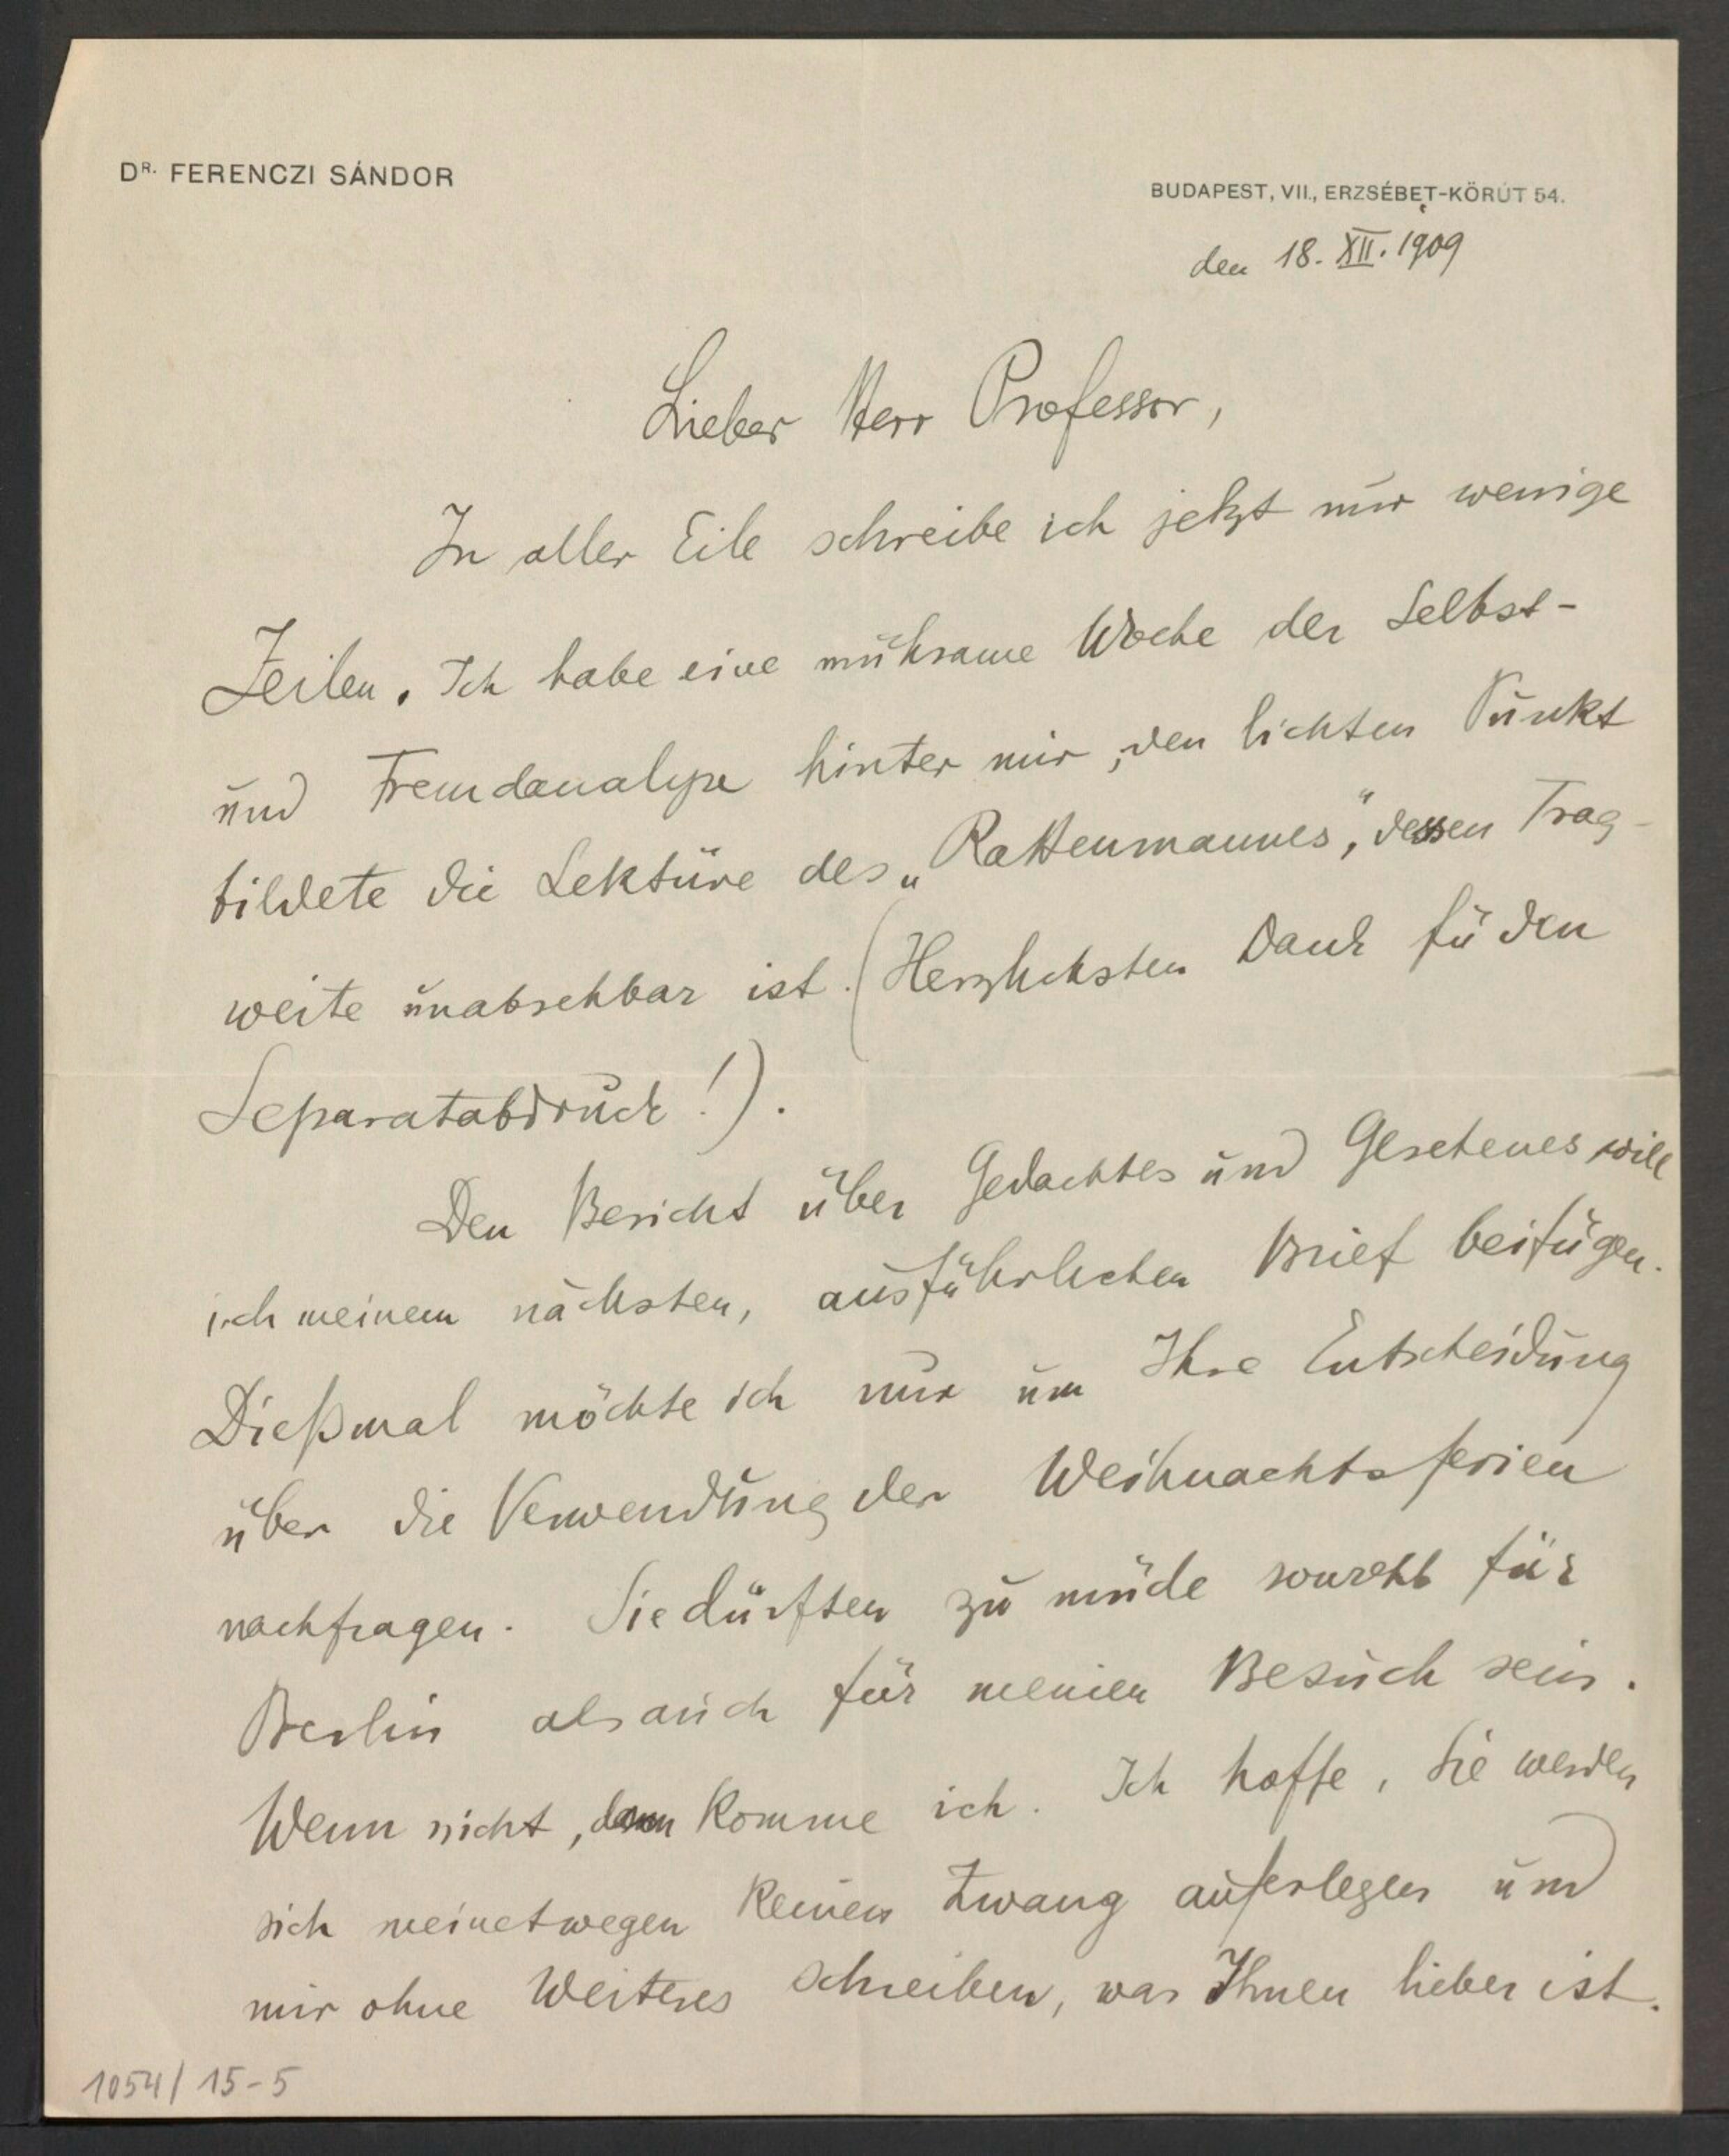 DR. FERENCZI SÁNDOR
BUDAPEST, VII., ERZSÉBET-KÖRÚT 54.
den 18. XII. 1909
Lieber Herr Professor,
In aller Eile schreibe ich jetzt nur wenige
Zeilen. Ich habe eine mühsame Woche der Selbst-
und Fremdanalyse hinter mir, den lichten Punkt
bildete die Lektüre des „Rattenmannes“, dessen Trag-
weite unabsehbar ist. (Herzlichsten Dank fü den
Separatabdruck!).
Den Bericht über Gedachtes und Gesehenes will
ich meinem nächsten, ausführlichen Brief beifügen.
Dießmal möchte ich nur um Ihre Entscheidung
über die Verwendung der Weihnachtsferien
nachfragen. Sie dürften zu müde sowohl für
Berlin als auch für meinen Besuch sein.
Wenn nicht, dann komme ich. Ich hoffe, Sie werden
sich meinetwegen keinen Zwang auferlegen und
mir ohne Weiteres schreiben, was Ihnen lieber ist.
1054/15-5